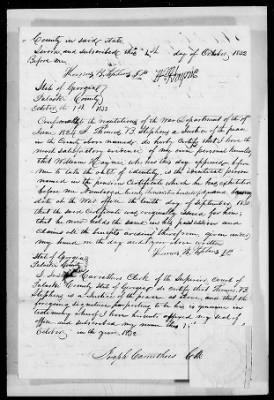 County in said State
Sworn and subscribed this 1st day of October 1832
Before me,
Thomas B. Stephens J.P.
State of Georgia
Pulaski County
October 1st 1832
Conformably to the regulations of the War Department of the
June 1824 I Thomas B. Stephens a Justice of the peace
in the County above named do hereby Certify that I have the
most satisfactory evidence of my own personal
that William Hayne who has this day appeared before
me to take the oath of identity, is the identical person
named in the pension Certificate which he has exhibited
before me Numbered
date at the War office the tenth day of September 1830
that the said Certificate was
that he now holds the same in his possession and
claims all the benefits arising therefrom, given under
my hand on the day and year above written
Thomas B. Stephens J.P.
State of Georgia
Pulaski County
I Joseph Carruthers Clerk of the Superior Court of
Pulaski County State of Georgia do certify that Thomas B.
Stephens is a Justice of the peace as above, and that the
foregoing signature purporting to be his is genuine in
testimony whereof I have hereunto affixed my seal of
office and subscribed my name this 1
October in the year 1832
Joseph Carruthers Clk